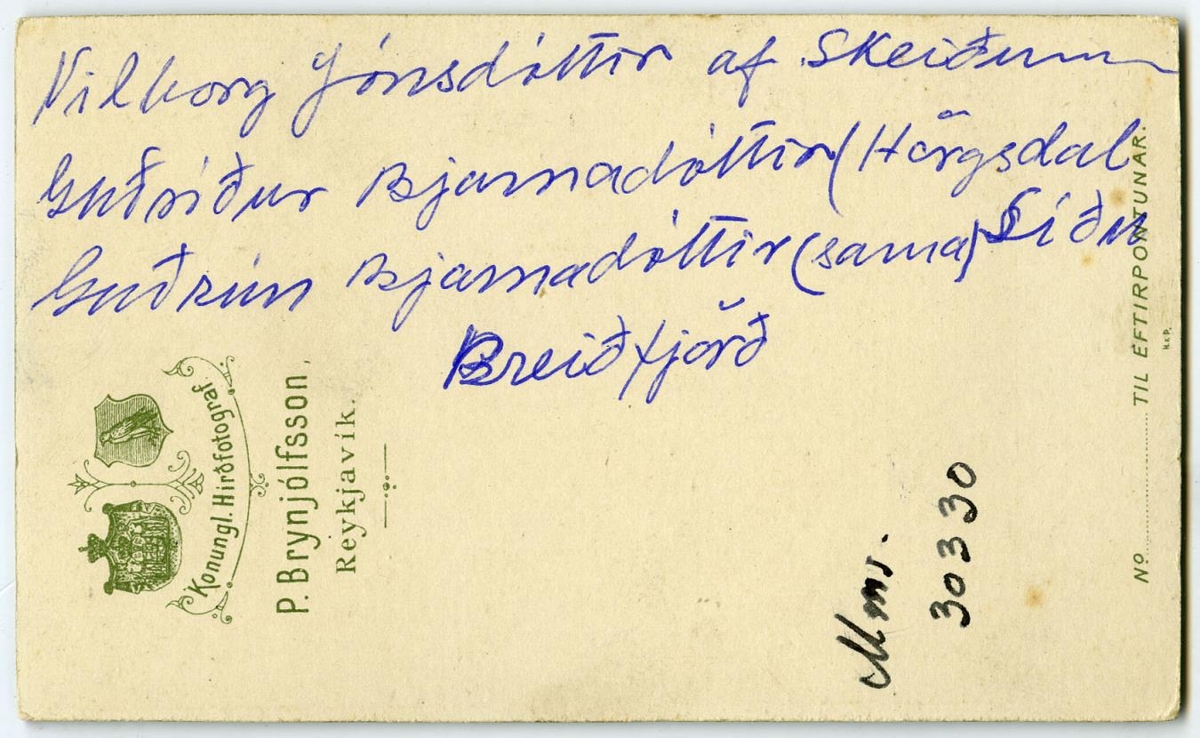 Vilborg Jónsdóttir af Skeiðum
Guðríður Bjarnadóttir (Hörgsdal
Guðrún Bjarnadóttir (sama) Síðu
Breiðfjörð
Konungl. Hirðfotograf
P. Brynjólfsson,
Reykjavík.
Mms.
30330
No .......... TIL EFTIRPÖNTUNAR.
N.& P.